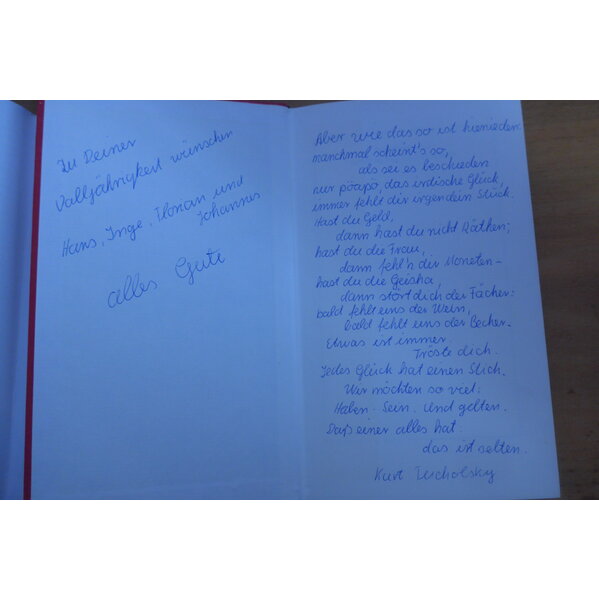 Zu Deiner
Volljährigkeit wünschen
Hans, Inge, Florian und
Johannes
alles Gute
Aber wie das so ist hienieden:
manchmal scheint's so,
als sei es beschieden
nur pöapö, das irdische Glück,
immer fehlt dir irgendein Stück.
Hast du Geld,
dann hast du nicht Käthen;
hast du die Frau,
dann fehl'n dir Moneten -
hast du die Geisha,
dann stört dich der Fächer:
bald fehlt uns der Wein,
bald fehlt uns der Becher.
Etwas ist immer.
Tröste dich.
Jedes Glück hat einen Stich.
Wir möchten so viel:
Haben. Sein. Und gelten.
Daß einer alles hat
das ist selten.
Kurt Tucholsky